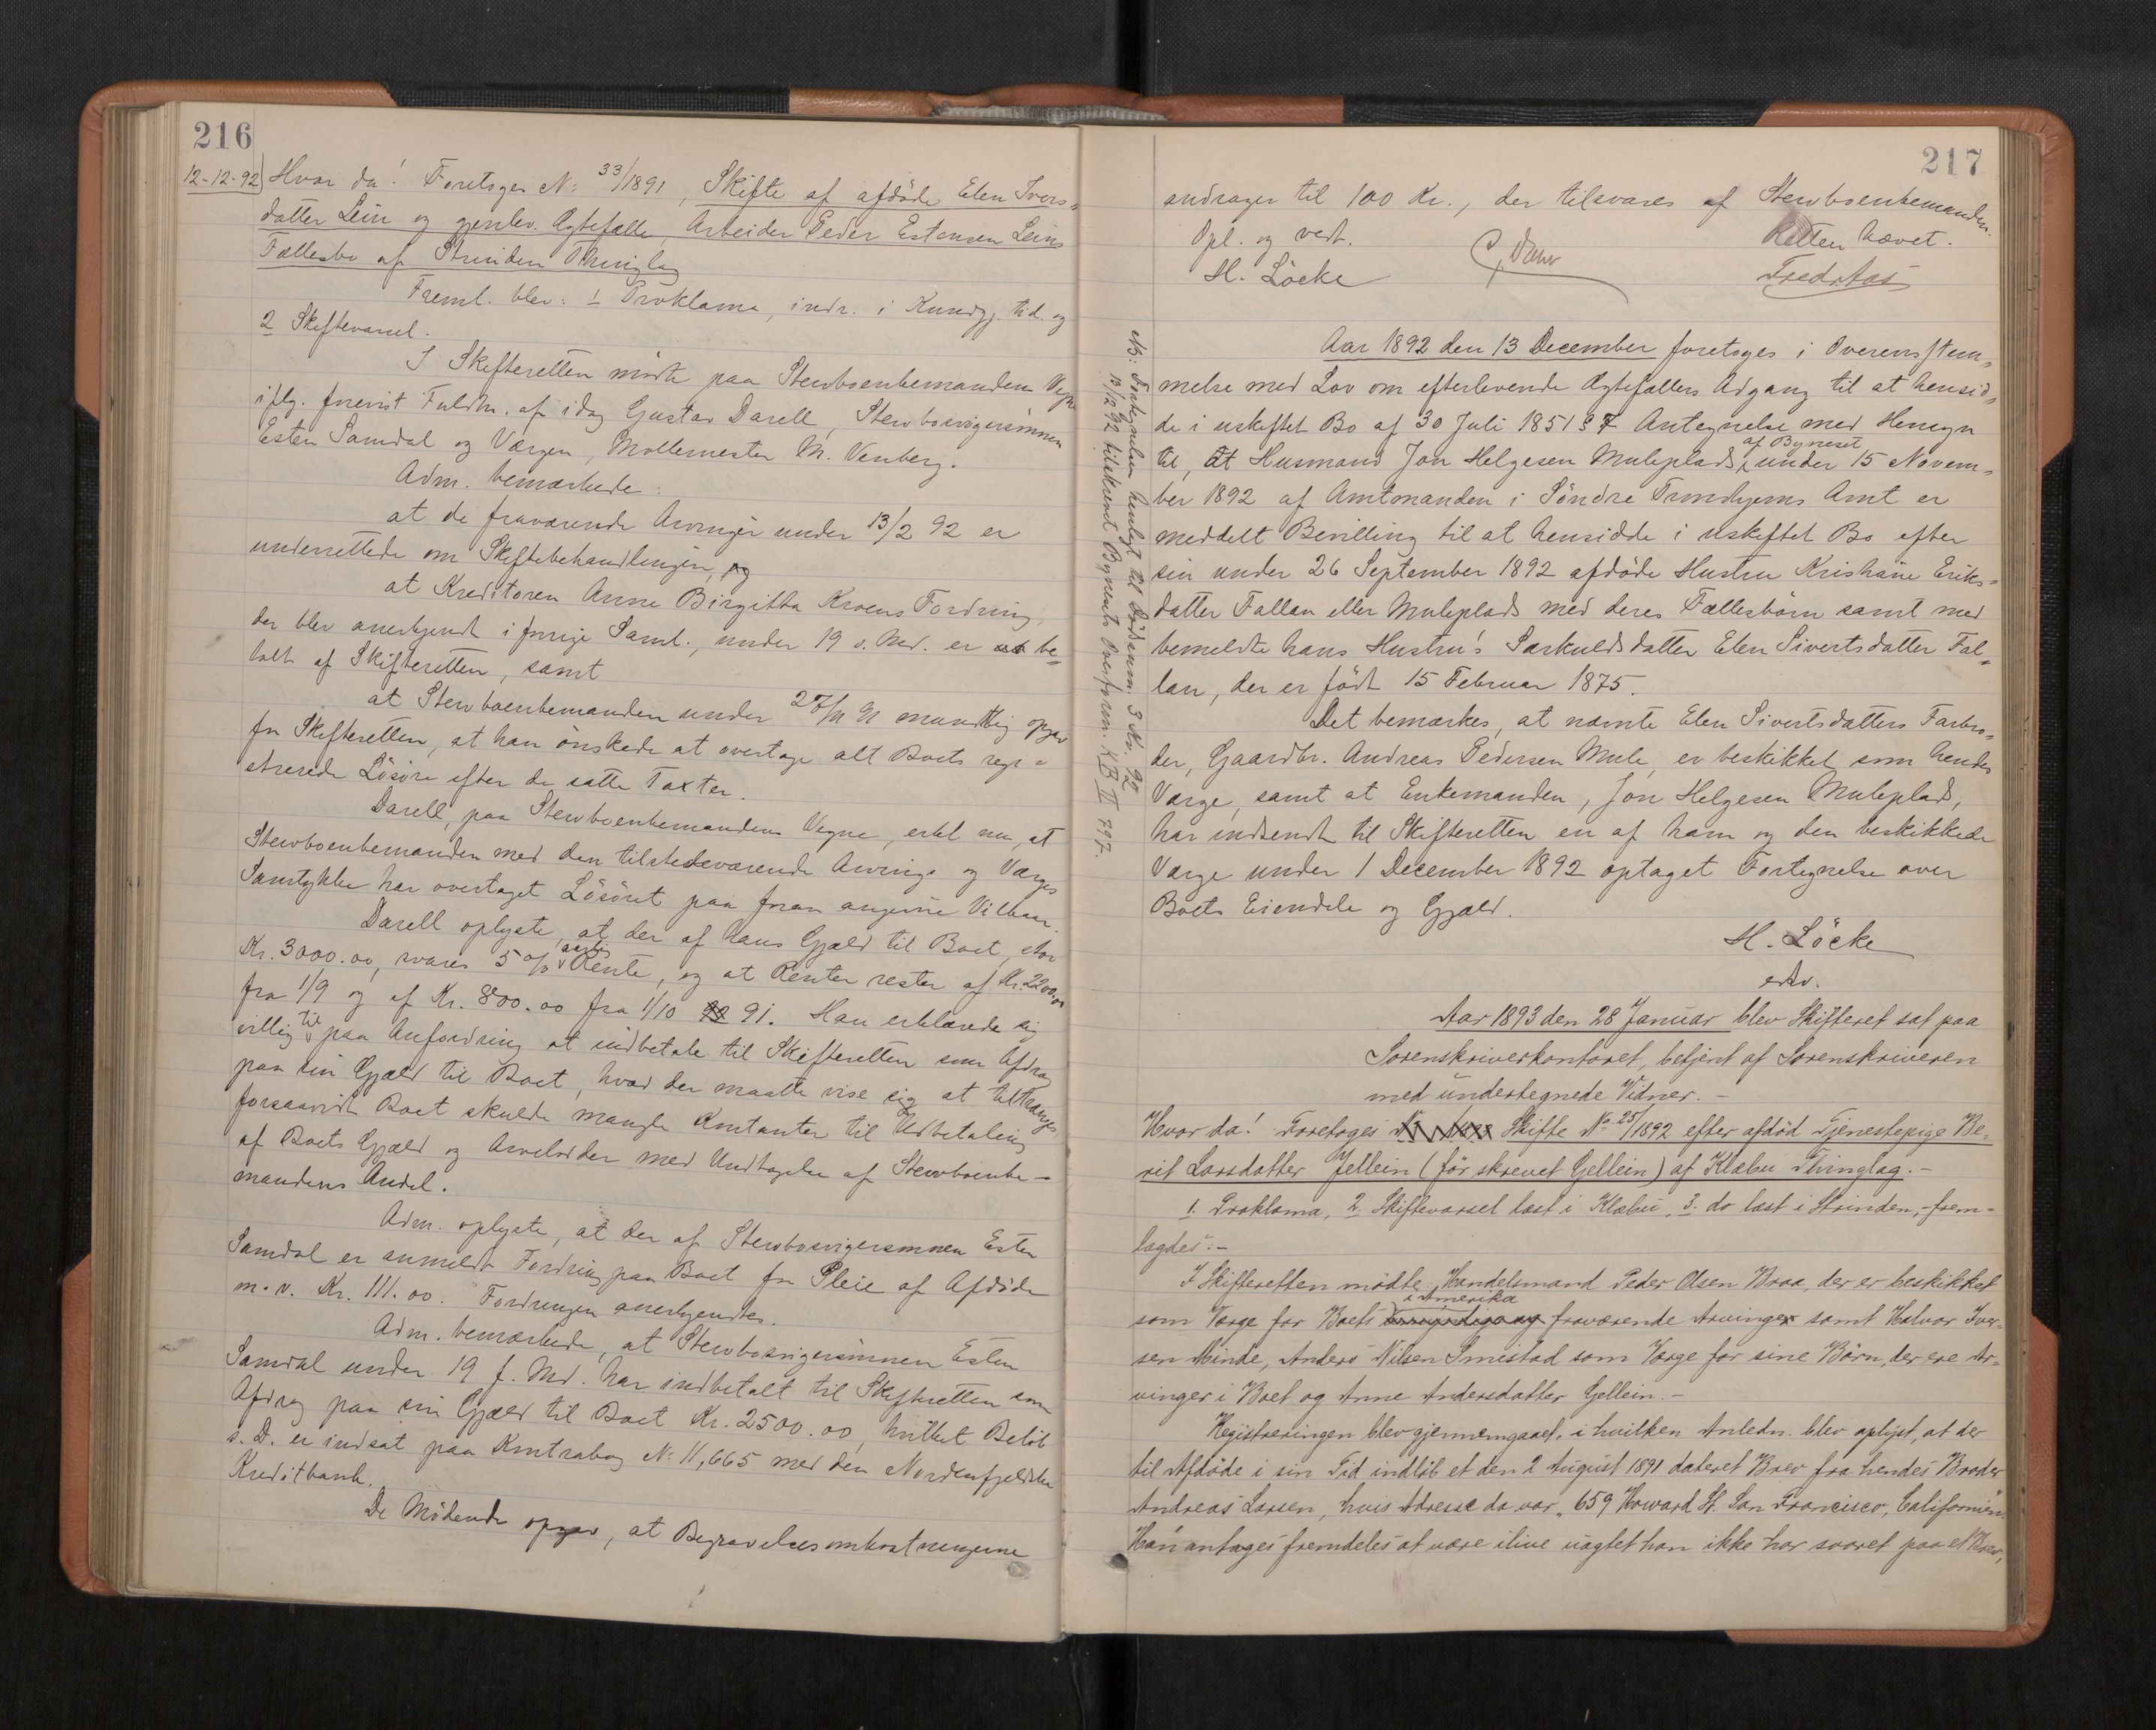 216
12-12-92) Hvor da! Foretoges No: 33/1891, Skifte af afdöde Elen Ivers=
datter Lein og gjenlev. Ægtefælle, Arbeider Peder Estensen Leins
Fællesbo af Strinden Thinglag
Freml. blev: 1 Proklama, indr. i Kundgj. tid. og
2 Skiftevarsel.
I Skifteretten mödte paa Stervboenkemandens Vegne
iflg. forevist Fuldm. af idag Gustav Darell, Stervbosvigersönnen
Esten Samdal og Værgen, Møllemester M. Venberg.
Adm. bemærkede:
at de fraværende Arvinger under 13/2 92 er
underrettede om Skiftebehandlingen, og
at Kreditoren Anne Birgitta Kroens Fordring,
der blev anerkjendt i forrige Saml., under 19 s. Md. er be=
talt af Skifteretten, samt
at Stervboenkemanden under 27/11 91 mundtlig opgav
for Skifteretten, at han önskede at overtage alt Boets regi=
strerede Lösöre efter de satte Taxter.
Darell, paa Stervboenkemandens Vegne, erkl. nu, at
Stervboenkemanden med den tilstedeværende Arvings og Værges
Samtykke har overtaget Lösöret paa foran angivne Vilkaar.
Darell oplyste, at der af hans Gjæld til Boet, stor
Kr. 3000.00, svares 5 % aarlig Rente, og at Renter rester af Kr. 2200.00
fra 1/9 og af Kr. 800.00 fra 1/10 91. Han erklærede sig
villig til paa Anfordring at indbetale til Skifteretten som Afdrag
paa sin Gjæld til Boet, hvad der maatte vise sig at tiltrænges,
forsaavidt Boet skulde mangle Kontanter til Udbetaling
af Boets Gjæld og Arvelodder med Undtagelse af Stervboenke-
mandens Andel.
Adm. oplyste, at der af Stervbosvigersönnen Esten
Samdal er anmeldt Fordring paa Boet for Pleie af Afdöde
m. v. Kr. 111.00. Fordringen anerkjendtes.
Adm. bemærkede, at Stervbosvigersönnen Esten
Samdal under 19 f. Md. har indbetalt til Skifteretten som
Afdrag paa sin Gjæld til Boet Kr. 2500.00, hvilket Belöb
s. D. er indsat paa Kontrabog No: 11,665 med den Nordenfjeldske
Kreditbank.
De Mödende opgav, at Begravelsesomkostningerne
217
andrager til 100 Kr., der tilsvares af Stervboenkemanden.
Opl. og vedt. Retten hævet.
H. Löcke G. Darell Fredr. Aas
Aar 1892 den 13 December foretoges i Overensstem=
melse med Lov om efterlevende Ægtefællers Adgang til at hensid=
de i uskiftet Bo af 30 Juli 1851 § 7 Antegnelse med Hensyn
til, at Husmand Jon Helgesen Muleplads, af Byneset under 15 Novem=
ber 1892 af Amtmanden i Söndre Trondhjems Amt er
meddelt Bevilling til at hensidde i uskiftet Bo efter
sin under 26 September 1892 afdöde Hustru Kristiane Eriks=
datter Fallan eller Muleplads med deres Fællesbörn samt med
bemeldte hans Hustru's Særkuldsdatter Elen Sivertsdatter Fal=
lan, der er födt 15 Februar 1875.
Det bemærkes, at nævnte Elen Sivertsdatters Farbro=
der, Gaardbr. Andreas Pedersen Mule, er beskikket som hendes
Værge, samt at Enkemanden, Jon Helgesen Muleplads,
har indsendt til Skifteretten en af ham og den beskikkede
Værge under 1 December 1892 optaget Fortegnelse over
Boets Eiendele og Gjæld.
H. Löcke
edsv.
NB: Fortegnelsen henlagt til Dödsanm. 3 Kv. 92
13/12 92 tilskrevet Bynesets Overform. KB II 797.
Aar 1893 den 28 Januar blev Skifteret sat paa
Sorenskriverkontoret, betjent af Sorenskriveren
med undertegnede Vidner. -
Hvor da! Foretoges Skifte No 25/1892 efter afdöd Tjenestepige Be=
rit Larsdatter Jellein (för skrevet Gellein) af Klæbu Thinglag. -
1. Proklama, 2. Skiftevarsel læst i Klæbu, 3. do læst i Strinden, - frem=
lagdes: -
I Skifteretten mödte: Handelsmand Peder Olsen Braa, der er beskikket
som Værge for Boets i Amerika fraværende Arvinger samt Halvor Iver=
sen Minde, Anders Nilsen Smistad som Værge for sine Börn, der ere Ar=
vinger i Boet og Anne Andersdatter Gellein. -
Registreringen blev gjennemgaaet, i hvilken Anledn. blev oplyst, at der
til Afdöde i sin Tid indlöb et den 2 August 1891 dateret Brev fra hendes Broder
Andreas Larsen, hvis Adresse da var „659 Howard St. San Francisco, Californien".
Han antages fremdeles at være ilive uagtet han ikke har svaret paa et Brev,